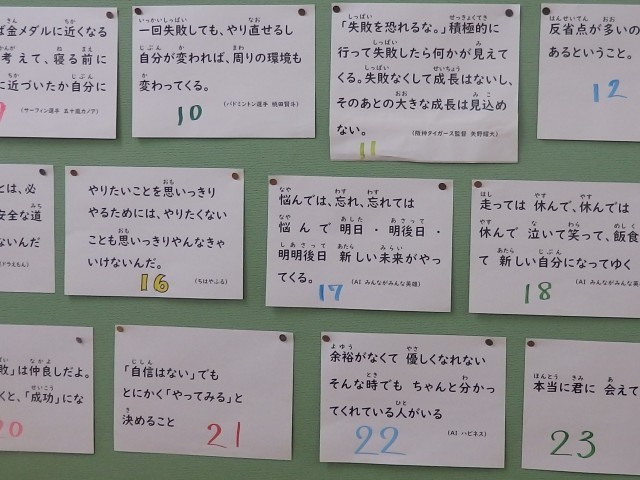 ば金メダルに近くなる
考えて、寝る前に
に近づいたか自分に
(サーフィン選手 五十嵐カノア)
9
一回失敗しても、やり直せるし
自分が変われば、周りの環境も
変わってくる。
(バドミントン選手 桃田賢斗)
10
「失敗を恐れるな。」積極的に
行って失敗したら何かが見えて
くる。失敗なくして成長はないし、
そのあとの大きな成長は見込め
ない。
(阪神タイガース監督 矢野燿大)
11
反省点が多いの
あるということ。
12
とは、必
安全な道
ないんだ
(ドラえもん)
やりたいことを思いっきり
やるためには、やりたくない
ことも思いっきりやんなきゃ
いけないんだ。
(ちはやふる)
16
悩んでは、忘れ、忘れては
悩んで 明日・明後日・
明明後日 新しい未来がやっ
てくる。
(AI みんながみんな英雄)
17
走っては 休んで、休んでは
休んで 泣いて笑って、飯食
て 新しい自分になってゆく
(AI みんながみんな英
18
敗」は仲良しだよ。
くと、「成功」にな
20
「自信はない」でも
とにかく「やってみる」と
決めること
21
余裕がなくて 優しくなれない
そんな時でも ちゃんと分かっ
てくれている人がいる
(AI ハピネス)
22
本当に君に 会えて
23